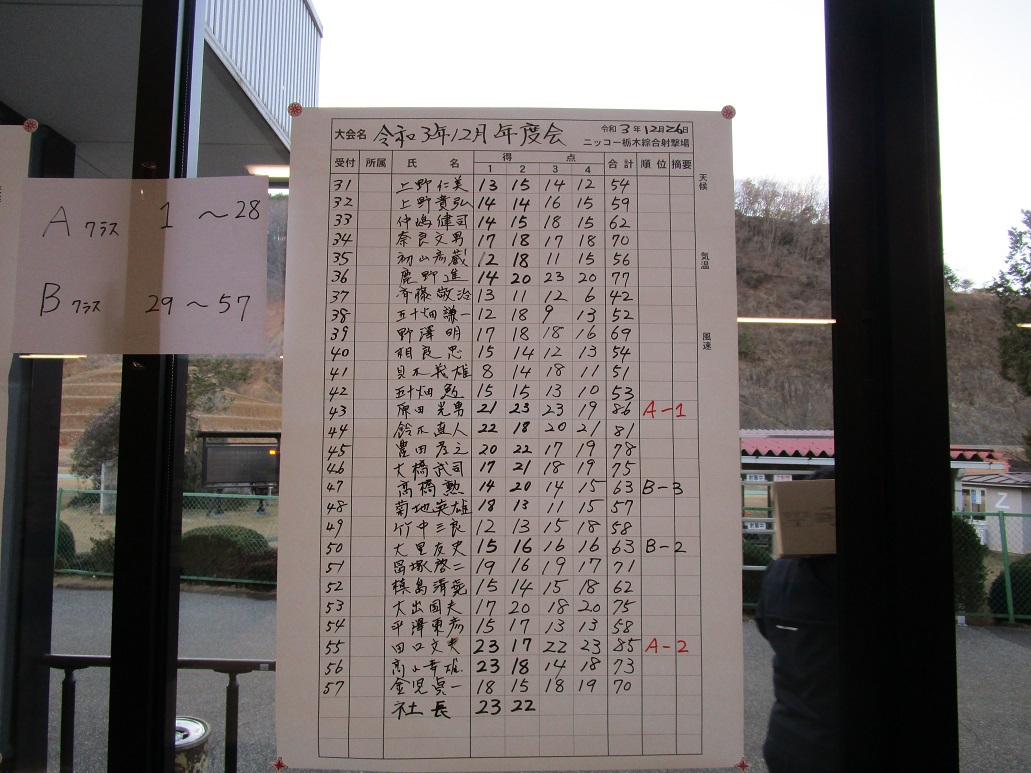 A クラス 1 〜 28
B クラス 29 〜 57
大会名 令和3年12月 年度会
令和 3 年 12月 26日
ニッコー栃木綜合射撃場
受付 所属 氏 名 得 点 合計 順位 摘要
1 2 3 4
天候
気温
風速
31 上野仁美 13 15 14 12 54
32 上野貴弘 14 14 16 15 59
33 仲嶋健司 14 15 18 15 62
34 奈良文男 17 18 17 18 70
35 初山彦蔵 12 18 11 15 56
36 鹿野進 14 20 23 20 77
37 斉藤敬治 13 11 12 6 42
38 五十畑謙一 12 18 9 13 52
39 野澤明 17 18 18 16 69
40 相良忠 15 14 12 13 54
41 貝木義雄 8 14 18 11 51
42 五十畑勉 15 15 13 10 53
43 原田光男 21 23 23 19 86 A-1
44 鈴木直人 22 18 20 21 81
45 豊田 20 22 17 19 78
46 大橋武司 17 21 18 19 75
47 高橋勲 14 20 14 15 63 B-3
48 菊地英雄 18 13 11 15 57
49 竹中三良 12 13 15 18 58
50 大里友史 15 16 16 16 63 B-2
51 冨塚啓二 19 16 19 17 71
52 15 14 15 18 62
53 大出国夫 17 20 18 20 75
54 平澤東彦 15 17 13 13 58
55 田口文夫 23 17 22 23 85 A-2
56 高山幸雄 23 18 14 18 73
57 金児眞一 18 15 18 19 70
社長 23 22
Z